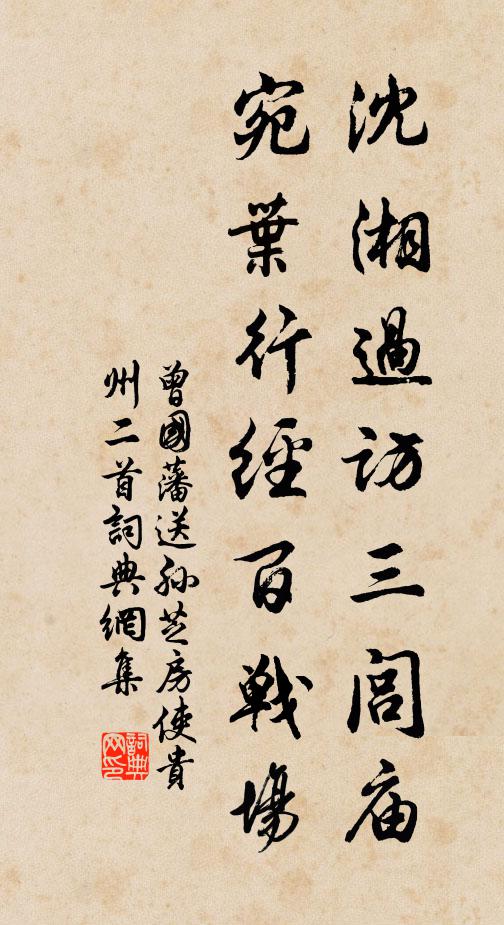 沈湘過訪三閭庙
宛葉行經百戰場
曾國藩送孙芝房使貴
州二首詞典網集
詞典
网印